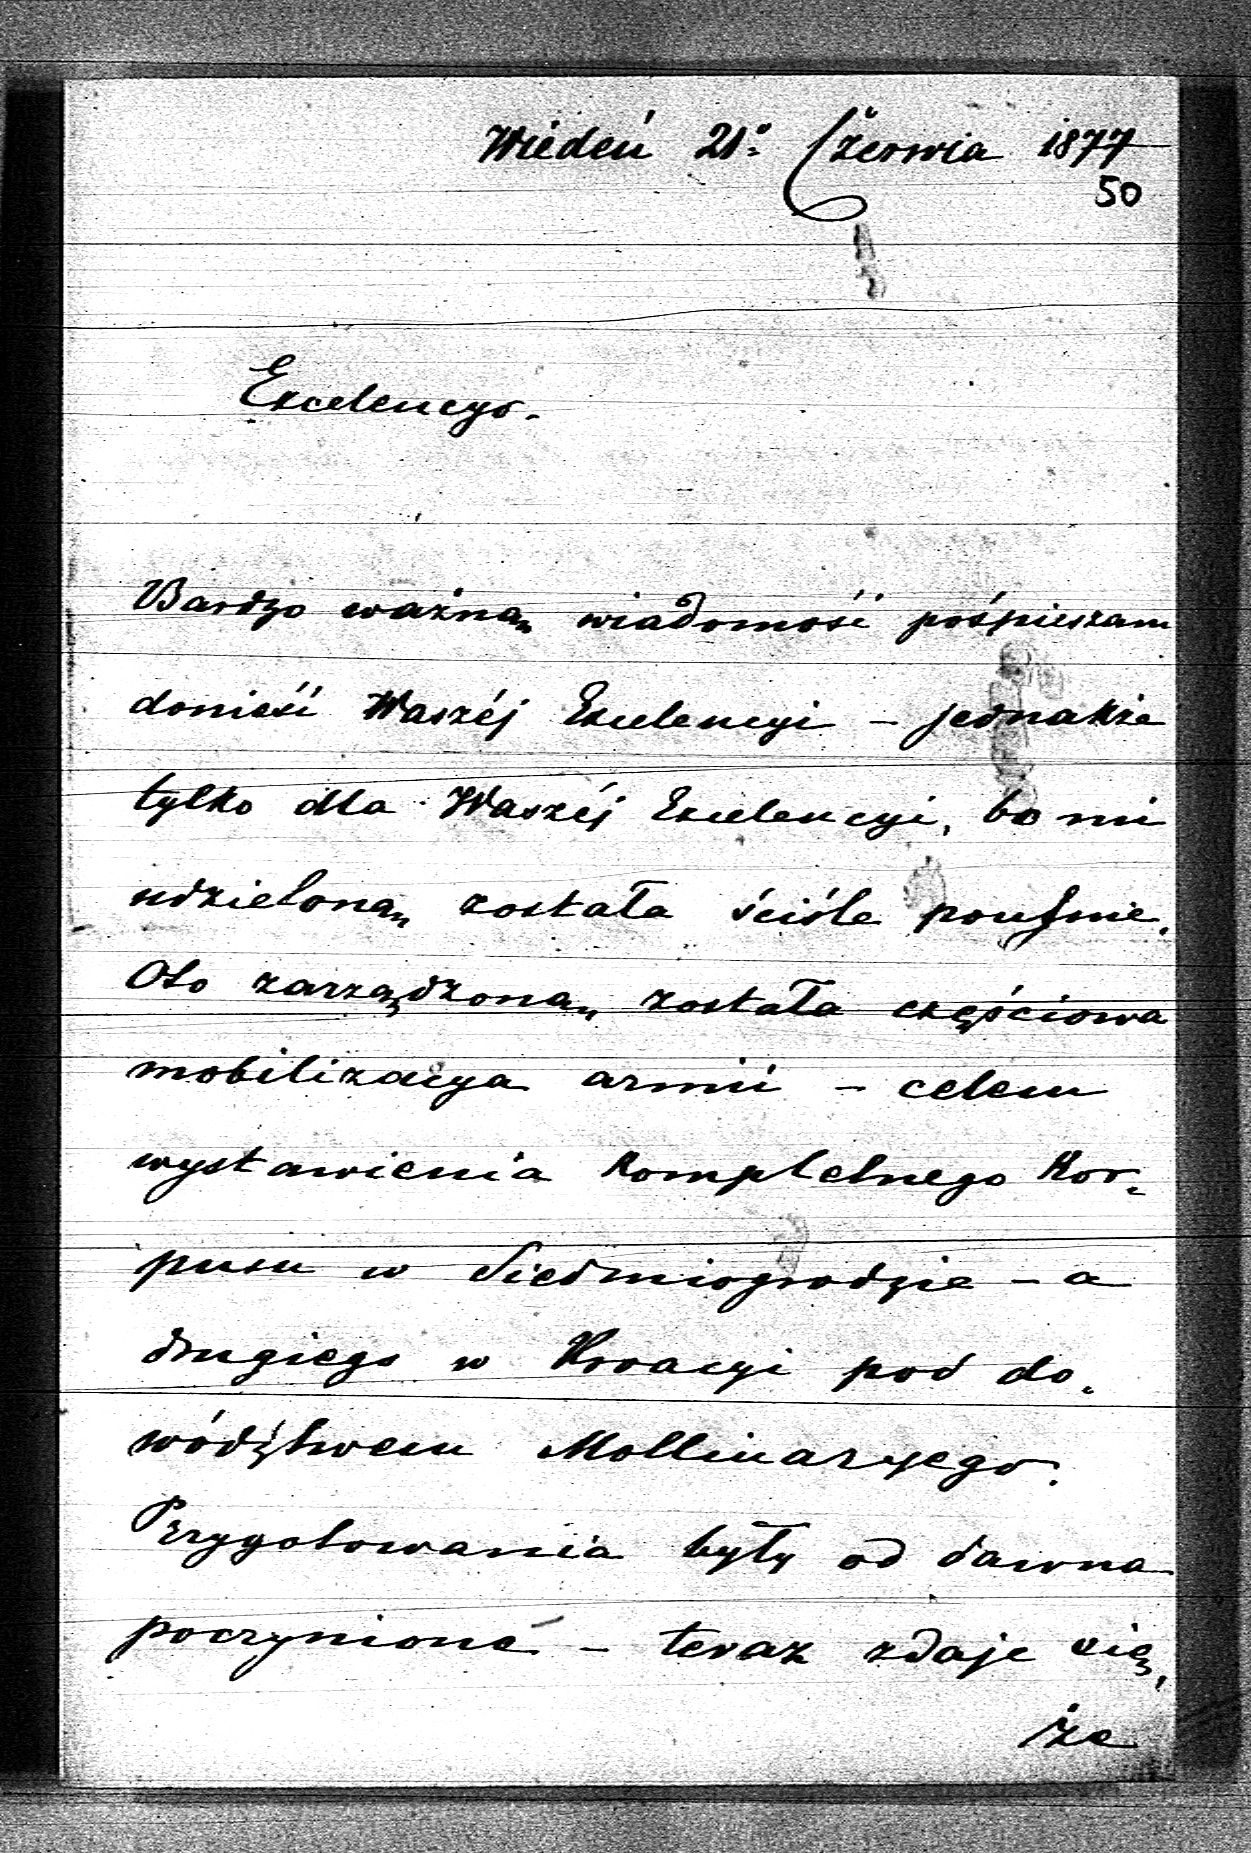 Wiedeń 21º Czerwia 1877
50
Excelencyo.
Bardzo ważną wiadomość pośpieszam
donieść Waszéj Excelencyi – jednakże
tylko dla Waszéj Excelencyi, bo mi
udzieloną została ściśle poufnie.
Oto zarządzoną została częściowa
mobilizacya armii – celem
wystawienia kompletnego kor-
pusu w Siedmiogrodzie – a
drugiego w Kroacyi pod do-
wództwem Mollinaryego.
Przygotowania były od dawna
poczynione – teraz zdaje się,
że